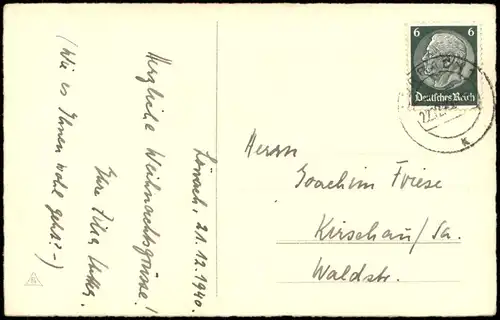 Lörrach, 21.12.1940.
Herzliche Weihnachtsgrüsse!
Ihre
(Wie es Ihnen wohl geht? -)
6 6
Deutsches Reich
Herrn
Joachim Friese
Kirschau/Sa.
Waldstr.